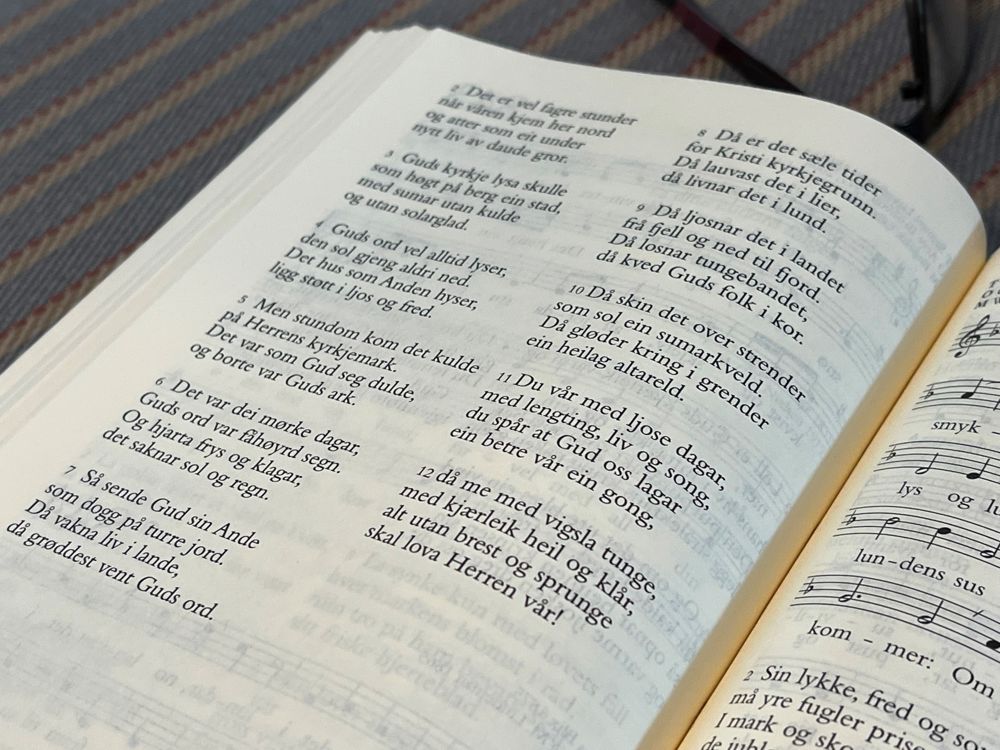 2 Det er vel fagre stunder
når våren kjem her nord
og atter som eit under
nytt liv av daude gror.
3 Guds kyrkje lysa skulle
som høgt på berg ein stad,
med sumar utan kulde
og utan solarglad.
4 Guds ord vel alltid lyser,
den sol gjeng aldri ned.
Det hus som Anden hyser,
ligg støtt i ljos og fred.
5 Men stundom kom det kulde
på Herrens kyrkjemark.
Det var som Gud seg dulde,
og borte var Guds ark.
6 Det var dei mørke dagar,
Guds ord var fåhøyrd segn.
Og hjarta frys og klagar,
det saknar sol og regn.
7 Så sende Gud sin Ande
som dogg på turre jord.
Då vakna liv i lande,
då grøddest vent Guds ord.
8 Då er det sæle tider
for Kristi kyrkjegrunn.
Då lauvast det i lier,
då livnar det i lund.
9 Då ljosnar det i landet
frå fjell og ned til fjord.
Då losnar tungebandet,
då kved Guds folk i kor.
10 Då skin det over strender
som sol ein sumarkveld.
Då gløder kring i grender
ein heilag altareld.
11 Du vår med ljose dagar,
med lengting, liv og song,
du spår at Gud oss lagar
ein betre vår ein gong,
12 då me med vigsla tunge,
med kjærleik heil og klår,
alt utan brest og sprunge
skal lova Herren vår!
smyk
lys og
lun-dens sus
kom - mer: Om
2 Sin lykke, fred og
må yre fugler
I mark og